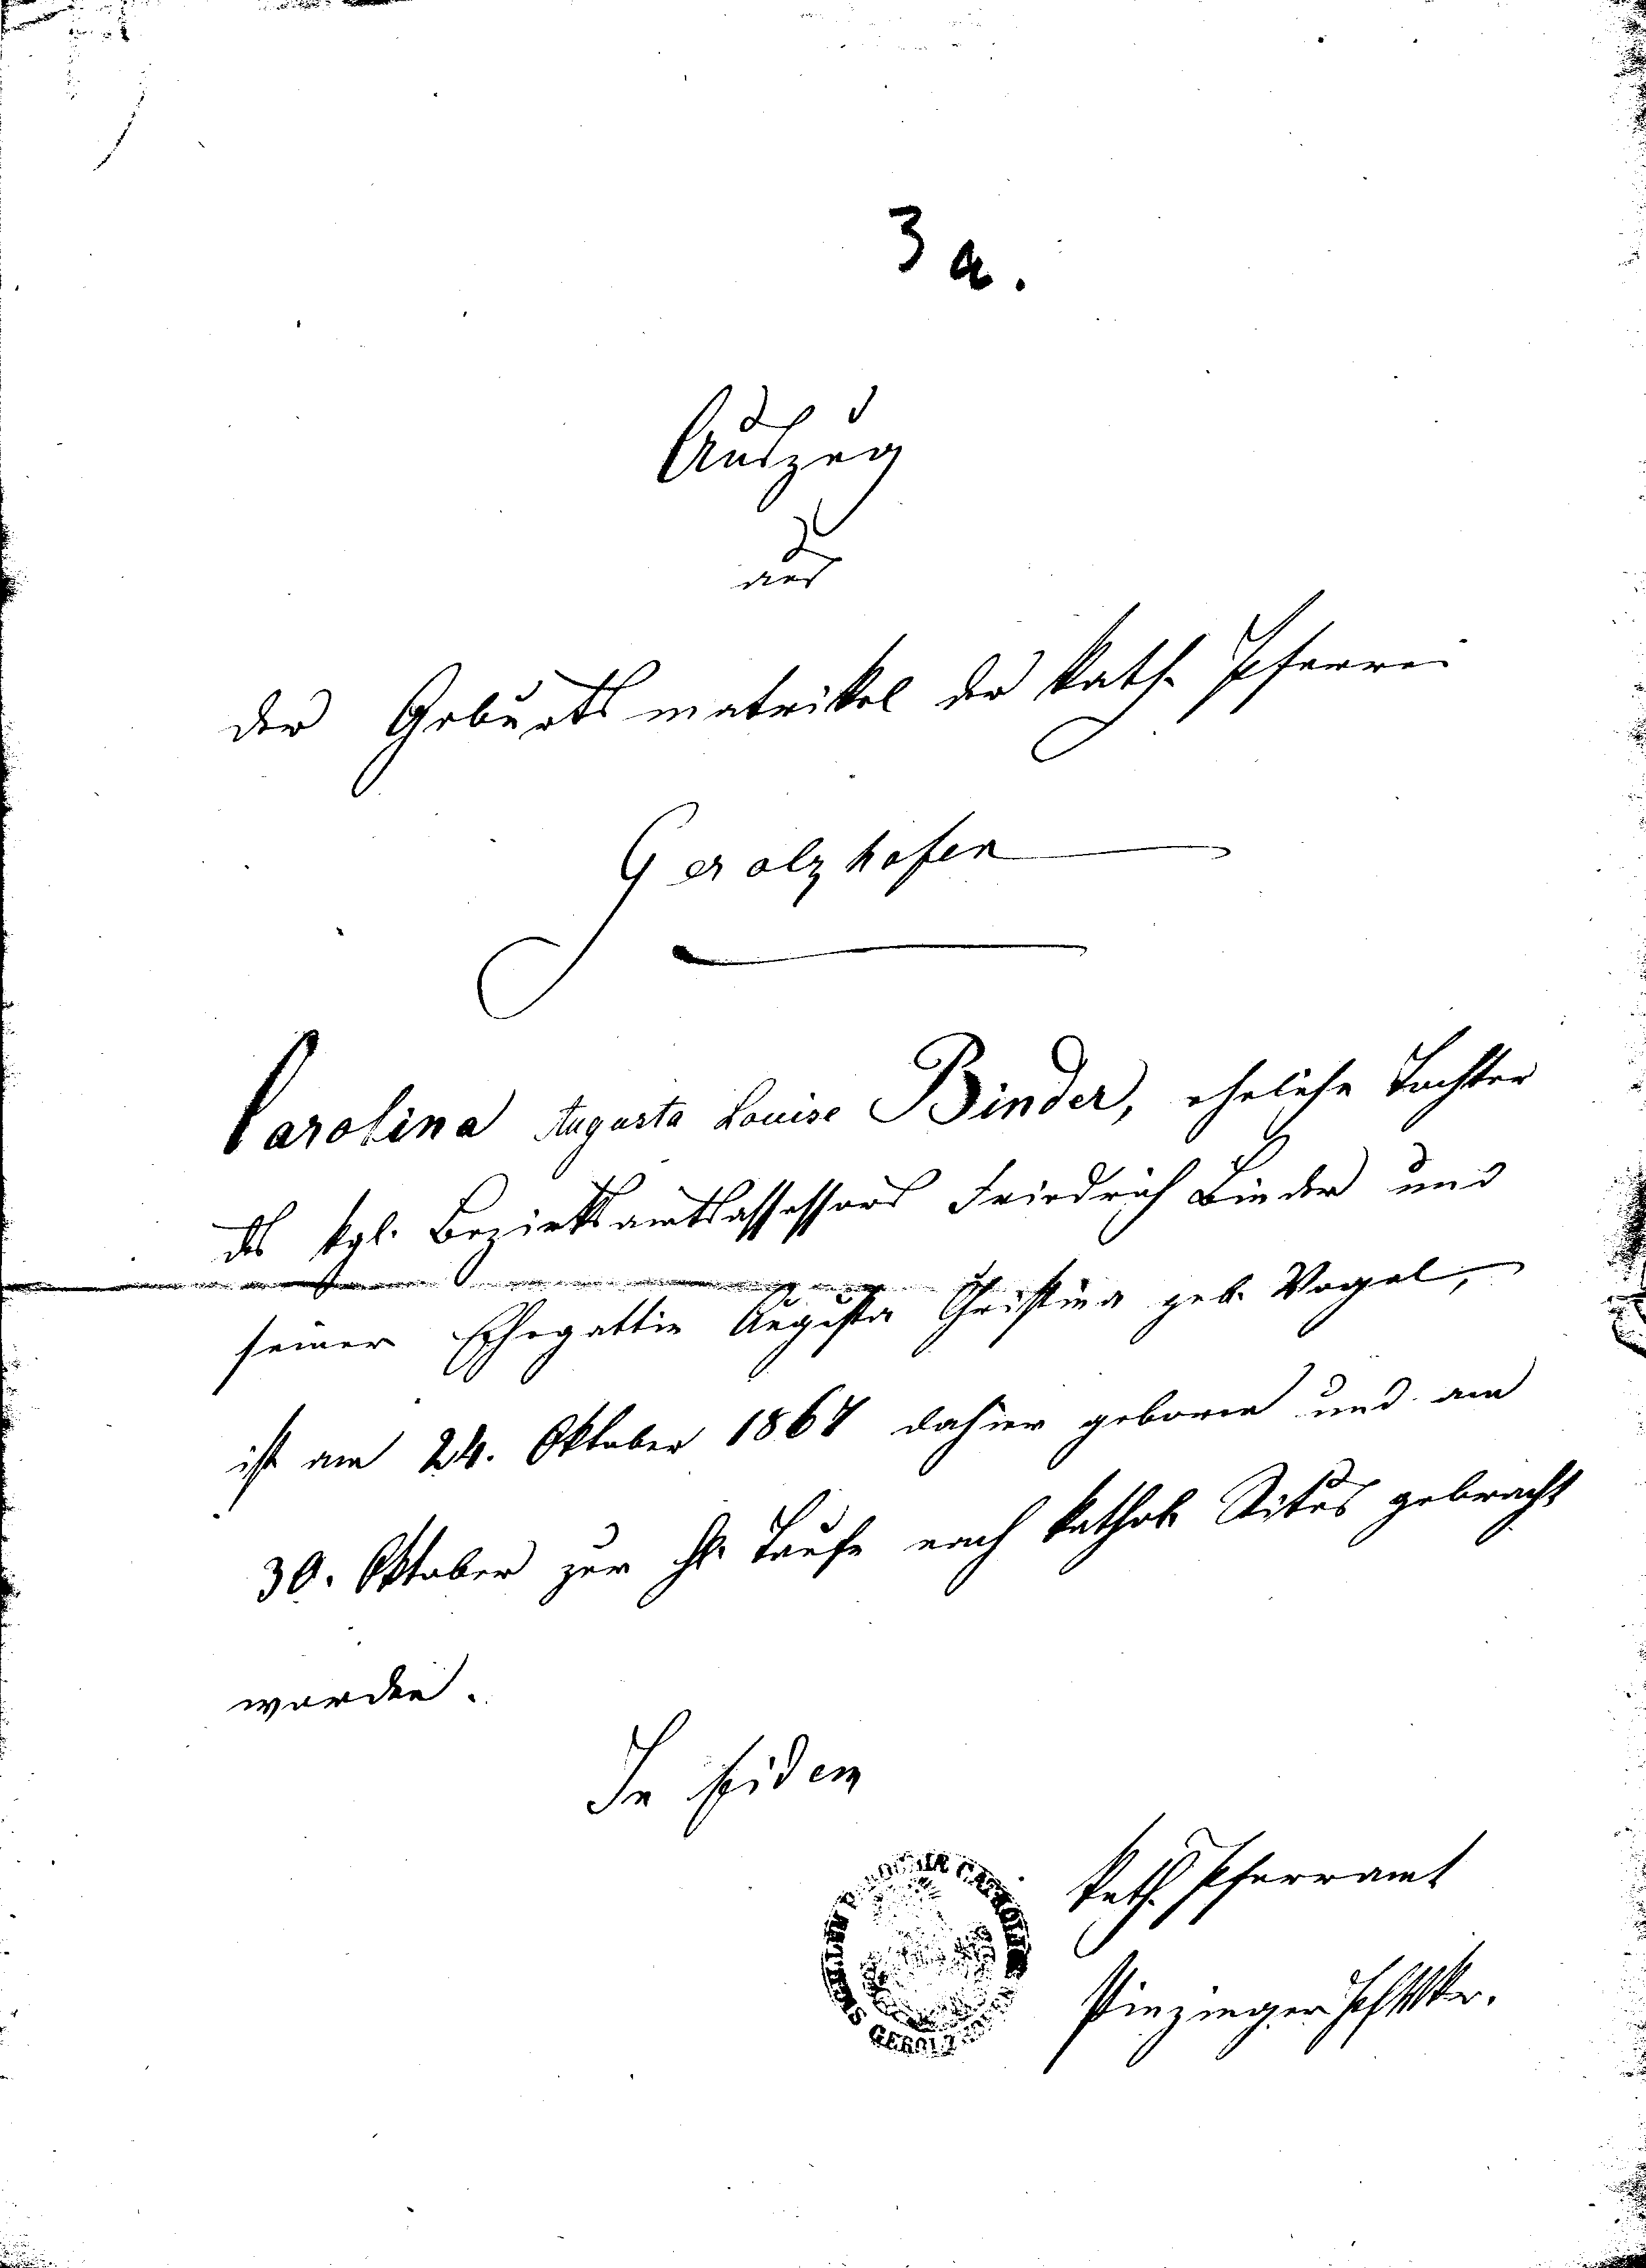 3 a.
Auszug
aus
der Geburtsmatrikel der kath. Pfarrei
Gerolzhofen
Carolina Augusta Louise Binder, eheliche Tochter
des kgl. Bezirksamtsassessors Friedrich Binder und
seiner Ehegattin Augusta Christina geb. Vogel,
ist am 24. Oktober 1867 dahier geboren und am
30. Oktober zur hl. Taufe nach kathol. Ritus gebracht
worden.
In fidem
Kath. Pfarramt